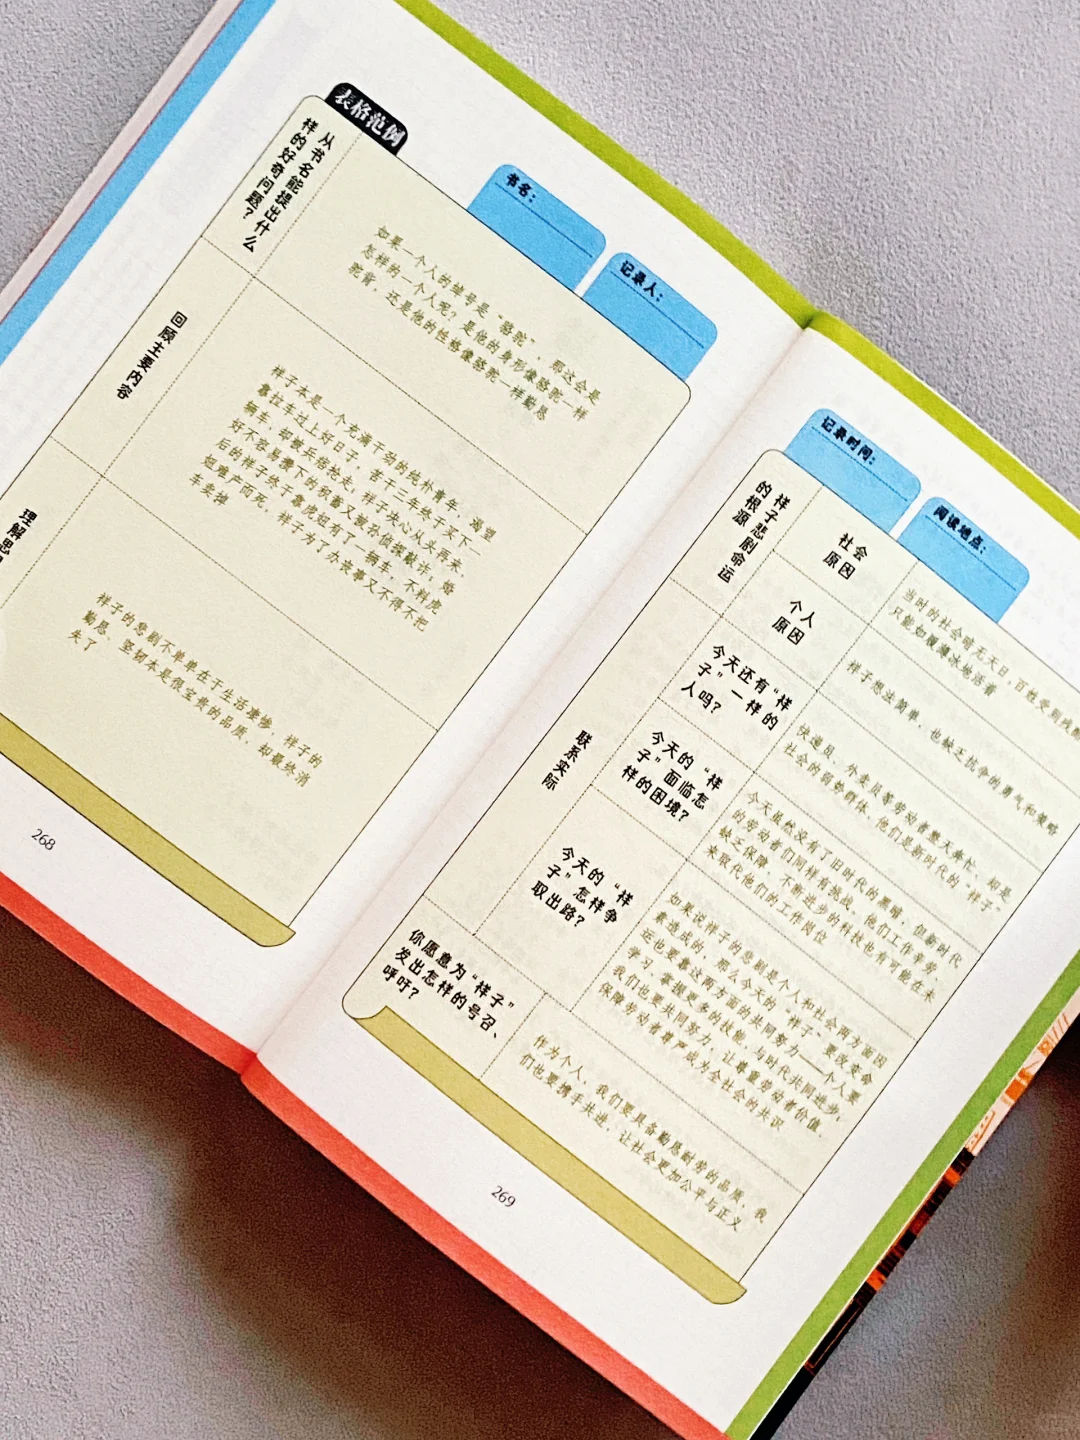 表格范例
书名：
记录人：
从书名能提出什么
样的好奇问题？
如果一个人的绰号是“骆驼”，那这会是
怎样的一个人呢？是他的身形像骆驼一样
驼背，还是他的性格像骆驼一样勤恳
回顾主要内容
祥子本是一个充满干劲的纯朴青年，渴望
靠拉车过上好日子，苦干三年终于买下一
辆车，却被兵痞抢走，祥子决心从头再来，
好不容易攒下的积蓄又被孙侦探敲诈；婚
后的祥子终于靠虎妞有了一辆车，不料虎
妞难产而死，祥子为了办丧事又不得不把
车卖掉
理解思
祥子的悲剧不单单在于生活凄惨，祥子的
勤恳、坚韧本是很宝贵的品质，却最终消
失了
268
记录时间：
阅读地点：
祥子悲剧命运
的根源
社会
原因
当时的社会暗无天日，百姓受到残酷
只能如履薄冰地活着
个人
原因
祥子想法简单，也缺乏抗争的勇气和策略
联系实际
今天还有“祥
子”一样的
人吗？
快递员、外卖员等劳动者整天奔忙，却是
社会的弱势群体，他们是新时代的“祥子”
今天的“祥
子”面临怎
样的困境？
今天虽然没有了旧时代的黑暗，但新时代
的劳动者们同样有挑战，他们工作辛劳，
缺乏保障，不断进步的科技也有可能在未
来取代他们的工作岗位
今天的“祥
子”怎样争
取出路？
如果说祥子的悲剧是个人和社会两方面因
素造成的，那么今天的“祥子”要改变命
运也要靠这两方面的共同努力——个人要
学习、掌握更多的技能，与时代共同进步；
我们也要共同努力，让尊重劳动者价值、
保障劳动者尊严成为全社会的共识
你愿意为“祥子”
发出怎样的号召、
呼吁？
作为个人，我们要具备勤恳耐劳的品质，我
们也要携手共进，让社会更加公平与正义
269